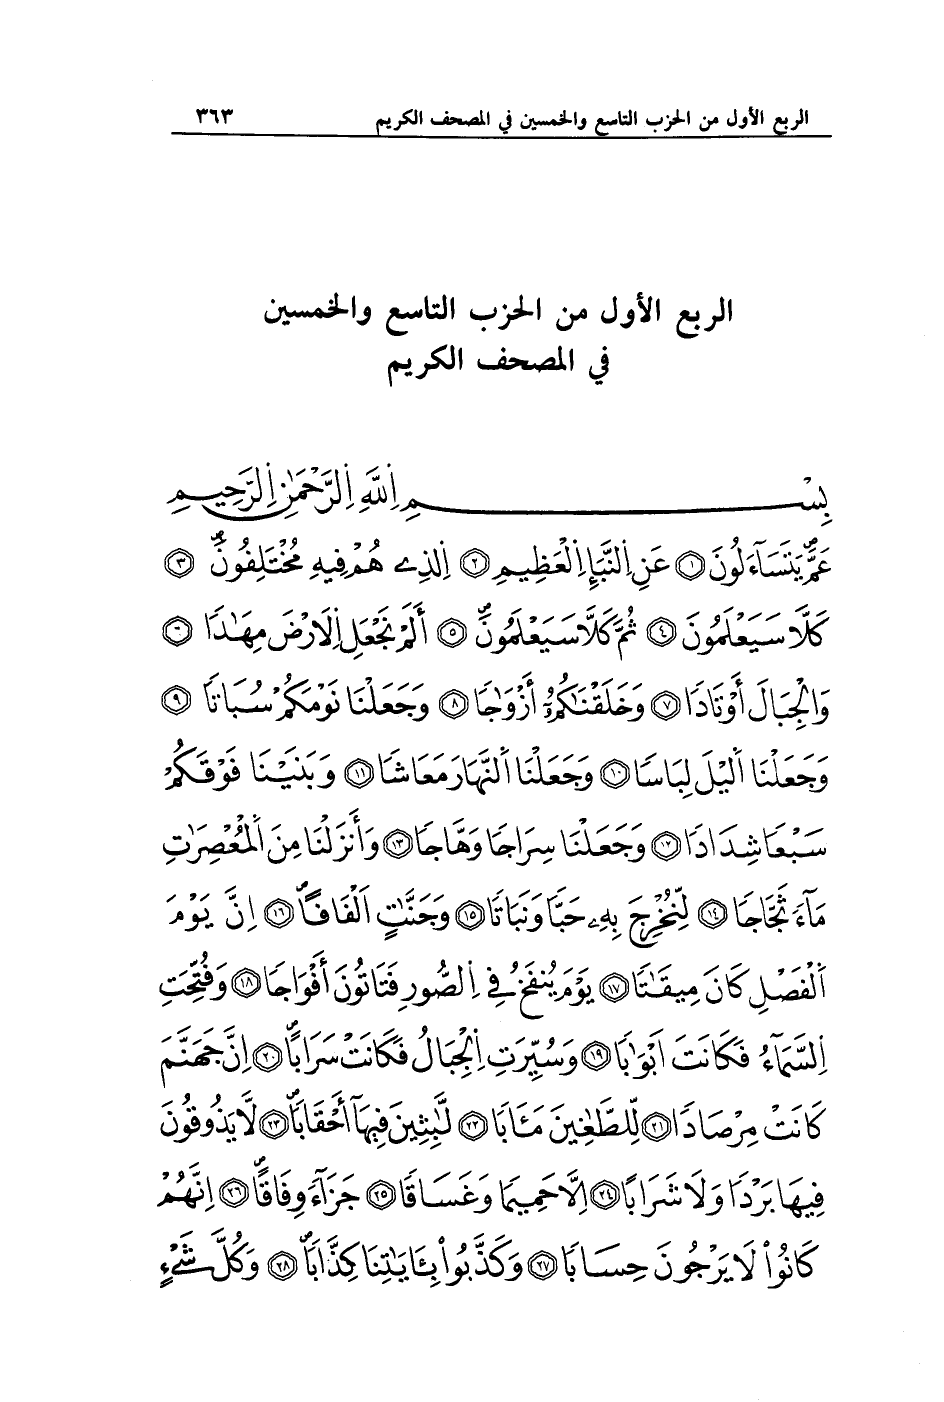 الربع الأول من الحزب التاسع والخمسين في المصحف الكريم ٣٦٣
الربع الأول من الحزب التاسع والخمسين
في المصحف الكريم
بِسْمِ اِللَّهِ اِلرَّحْمَٰنِ اِلرَّحِيمِ
عَمَّ يَتَسَآءَلُونَ ١ عَنِ اِلنَّبَإِ اِلْعَظِيمِ ٢ اِلذِے هُمْ فِيهِ مُخْتَلِفُونَ ٣
كَلَّا سَيَعْلَمُونَ ٤ ثُمَّ كَلَّا سَيَعْلَمُونَ ٥ أَلَمْ نَجْعَلِ اِلَارْضَ مِهَٰدًا ٦
وَالْجِبَالَ أَوْتَادًا ٧ وَخَلَقْنَٰكُمُۥٓ أَزْوَٰجًا ٨ وَجَعَلْنَا نَوْمَكُمْ سُبَاتًا ٩
وَجَعَلْنَا اَليْلَ لِبَاسًا ١٠ وَجَعَلْنَا اَلنَّهَارَ مَعَاشًا ١١ وَبَنَيْنَا فَوْقَكُمْ
سَبْعًا شِدَادًا ١٢ وَجَعَلْنَا سِرَاجًا وَهَّاجًا ١٣ وَأَنزَلْنَا مِنَ اَلْمُعْصِرَٰتِ
مَآءً ثَجَّاجًا ١٤ لِّنُخْرِجَ بِهِۦ حَبًّا وَنَبَاتًا ١٥ وَجَنَّٰتٍ اَلْفَافًا ١٦ اِنَّ يَوْمَ
اَلْفَصْلِ كَانَ مِيقَٰتًا ١٧ يَوْمَ يُنفَخُ فِے اِلصُّورِ فَتَاتُونَ أَفْوَاجًا ١٨ وَفُتِّحَتِ
اِلسَّمَآءُ فَكَانَتَ اَبْوَٰبًا ١٩ وَسُيِّرَتِ اِلْجِبَالُ فَكَانَتْ سَرَابًا ٢٠ اِنَّ جَهَنَّمَ
كَانَتْ مِرْصَادًا ٢١ لِّلطَّٰغِينَ مَـَٔابًا ٢٢ لَّٰبِثِينَ فِيهَآ أَحْقَابًا ٢٣ لَّا يَذُوقُونَ
فِيهَا بَرْدًا وَلَا شَرَابًا ٢٤ اِلَّا حَمِيمًا وَغَسَاقًا ٢٥ جَزَآءً وِفَاقًا ٢٦ اِنَّهُمْ
كَانُواْ لَا يَرْجُونَ حِسَابًا ٢٧ وَكَذَّبُواْ بِـَٔايَٰتِنَا كِذَّابًا ٢٨ وَكُلَّ شَےْءٍ